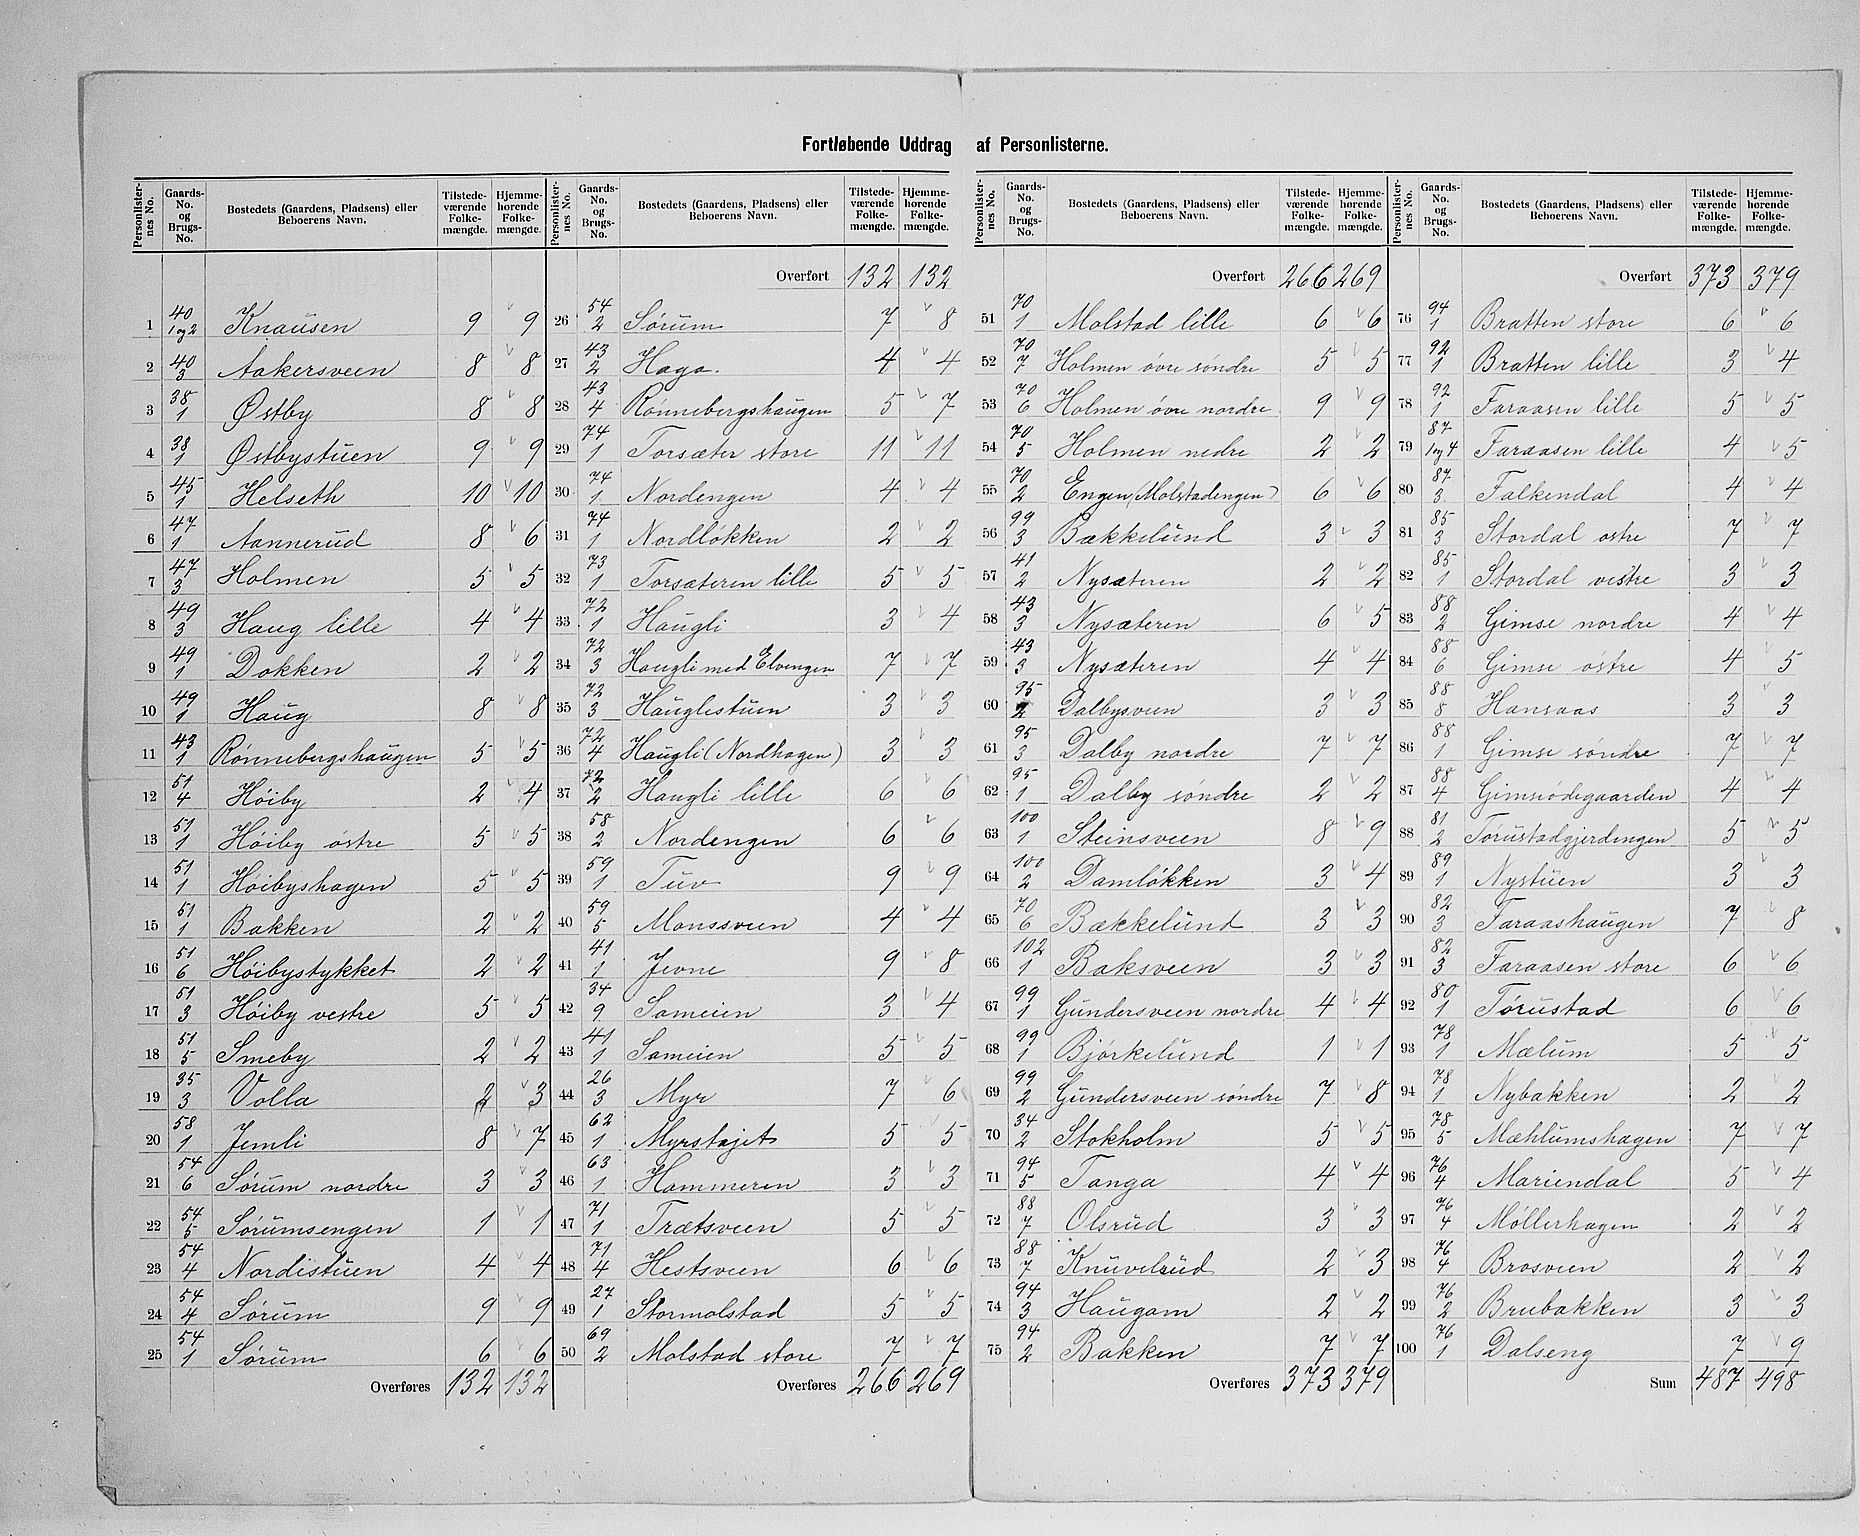 Fortløbende Uddrag af Personlisterne.
Personlisternes No. | Gaards-No. og Brugs-No. | Bostedets (Gaardens, Pladsens) eller Beboerens Navn. | Tilstedeværende Folkemængde. | Hjemmehørende Folkemængde.
1 40/1og2 Knausen 9 9
2 40/3 Aakersveen 8 8
3 38/1 Østby 8 8
4 38/1 Østbystuen 9 9
5 45/1 Helseth 10 10
6 47/1 Aannerud 8 6
7 47/3 Holmen 5 5
8 49/3 Haug lille 4 4
9 49/1 Dokken 2 2
10 49/1 Haug 8 8
11 43/1 Rønnebergshaugen 5 5
12 51/4 Høiby 2 4
13 51/1 Høiby østre 5 5
14 51/1 Høibyshagen 5 5
15 51/1 Bakken 2 2
16 51/6 Høibystykket 2 2
17 51/3 Høiby vestre 5 5
18 51/5 Smeby 2 2
19 35/3 Volla 2 3
20 58/1 Jemli 8 7
21 54/6 Sørum nordre 3 3
22 54/5 Sørumsengen 1 1
23 54/4 Nordistuen 4 4
24 54/4 Sørum 9 9
25 54/1 Sørum 6 6
Overføres 132 132
Personlisternes No. | Gaards-No. og Brugs-No. | Bostedets (Gaardens, Pladsens) eller Beboerens Navn. | Tilstedeværende Folkemængde. | Hjemmehørende Folkemængde.
Overført 132 132
26 54/2 Sørum 7 8
27 43/2 Haga. 4 4
28 43/4 Rønnebergshaugen 5 7
29 74/1 Torsæter store 11 11
30 74/1 Nordengen 4 4
31 74/1 Nordløkken 2 2
32 73/1 Torsæteren lille 5 5
33 72/1 Haugli 3 4
34 72/3 Haugli med Elvengen 7 7
35 72/3 Hauglistuen 3 3
36 72/4 Haugli (Nordhagen) 3 3
37 72/2 Haugli lille 6 6
38 58/2 Nordengen 6 6
39 59/1 Tuv 9 9
40 59/5 Monssveen 4 4
41 41/1 Jevne 9 8
42 34/9 Sameien 3 4
43 41/1 Sameien 5 5
44 26/3 Myr 7 6
45 62/1 Myrstajet 5 5
46 63/1 Hammeren 3 3
47 71/1 Trætsveen 5 5
48 71/4 Hestsveen 6 6
49 27/1 Stormolstad 5 5
50 69/2 Molstad store 7 7
Overføres 266 269
Personlisternes No. | Gaards-No. og Brugs-No. | Bostedets (Gaardens, Pladsens) eller Beboerens Navn. | Tilstedeværende Folkemængde. | Hjemmehørende Folkemængde.
Overført 266 269
51 70/1 Molstad lille 6 6
52 70/7 Holmen øvre søndre 5 5
53 70/6 Holmen øvre nordre 9 9
54 70/5 Holmen nedre 2 2
55 70/2 Engen (Molstadengen) 6 6
56 99/3 Bækkelund 3 3
57 41/2 Nysæteren 2 2
58 43/3 Nysæteren 6 5
59 43/3 Nysæteren 4 4
60 95/2 Dalbysveen 3 3
61 95/3 Dalby nordre 7 7
62 95/1 Dalby søndre 2 2
63 100/1 Steinsveen 8 9
64 100/2 Damløkken 3 4
65 70/6 Bækkelund 3 3
66 102/1 Baksveen 3 3
67 99/1 Gundersveen nordre 4 4
68 99/1 Bjørkelund 1 1
69 99/2 Gundersveen søndre 7 8
70 34/2 Stokholm 5 5
71 94/5 Tanga 4 4
72 88/7 Olsrud 3 3
73 88/7 Knuvelrud 2 3
74 94/3 Haugam 2 2
75 94/2 Bakken 7 7
Overføres 373 379
Personlisternes No. | Gaards-No. og Brugs-No. | Bostedets (Gaardens, Pladsens) eller Beboerens Navn. | Tilstedeværende Folkemængde. | Hjemmehørende Folkemængde.
Overført 373 379
76 94/1 Bratten store 6 6
77 92/1 Bratten lille 3 4
78 92/1 Faraasen lille 5 5
79 87/1og4 Faraasen lille 4 5
80 87/3 Falkendal 4 4
81 85/3 Stordal østre 7 7
82 85/1 Stordal vestre 3 3
83 88/2 Gimse nordre 4 4
84 88/6 Gimse østre 4 5
85 88/8 Hansaas 3 3
86 88/1 Gimse søndre 7 7
87 88/4 Gimseødegaarden 4 4
88 81/2 Tørustadgjerdengen 5 5
89 89/1 Nystuen 3 3
90 82/3 Faraashaugen 7 8
91 82/3 Faraasen store 6 6
92 80/1 Tørustad 6 6
93 78/1 Mælum 5 5
94 78/1 Nybakken 2 2
95 78/5 Mæhlumshagen 7 7
96 76/4 Mariendal 5 4
97 76/4 Møllerhagen 2 2
98 76/4 Brosveen 2 2
99 76/2 Brubakken 3 3
100 76/1 Dalseng 7 9
Sum 487 498